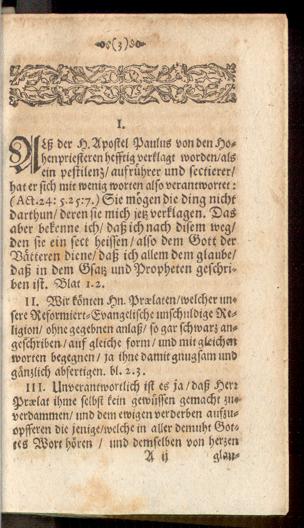 (3)
I.
ALß der H. Apostel Paulus von den Ho-
henpriesteren hefftig verklagt worden/als
ein pestilenz/ aufrührer und sectierer/
hat er sich mit wenig worten also verantwortet:
(Act. 24: 5. 25: 7.) Sie mögen die ding nicht
darthun/ deren sie mich jetz verklagen. Das
aber bekenne ich/ daß ich nach disem weg/
den sie ein sect heissen/ also dem Gott der
Vätteren diene/ daß ich allem dem glaube/
daß in dem Gsatz und Propheten geschri-
ben ist. Blat 1. 2.
II. Wir könten Hn. Prælaten/welcher un-
sere Reformiert-Evangelische unschuldige Re-
ligion/ ohne gegebnen anlaß/ so gar schwarz an-
geschriben/ auf gleiche form/ und mit gleichen
worten begegnen/ ja ihne damit gnugsam und
gänzlich abfertigen. bl. 2. 3.
III. Unverantwortlich ist es ja/ daß Herr
Prælat ihme selbst kein gewüssen gemacht zu-
verdammen/ und dem ewigen verderben aufzu-
opfferen die jenige/welche in aller demuht Got-
tes Wort hören / und demselben von herzen
A ij glau-